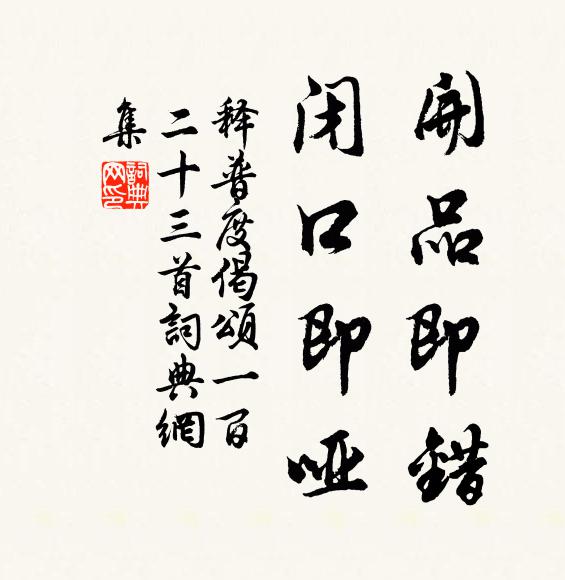 開品即錯
闭口即哑
释普度偈頌一百
二十三首詞典網
集
詞典
网印